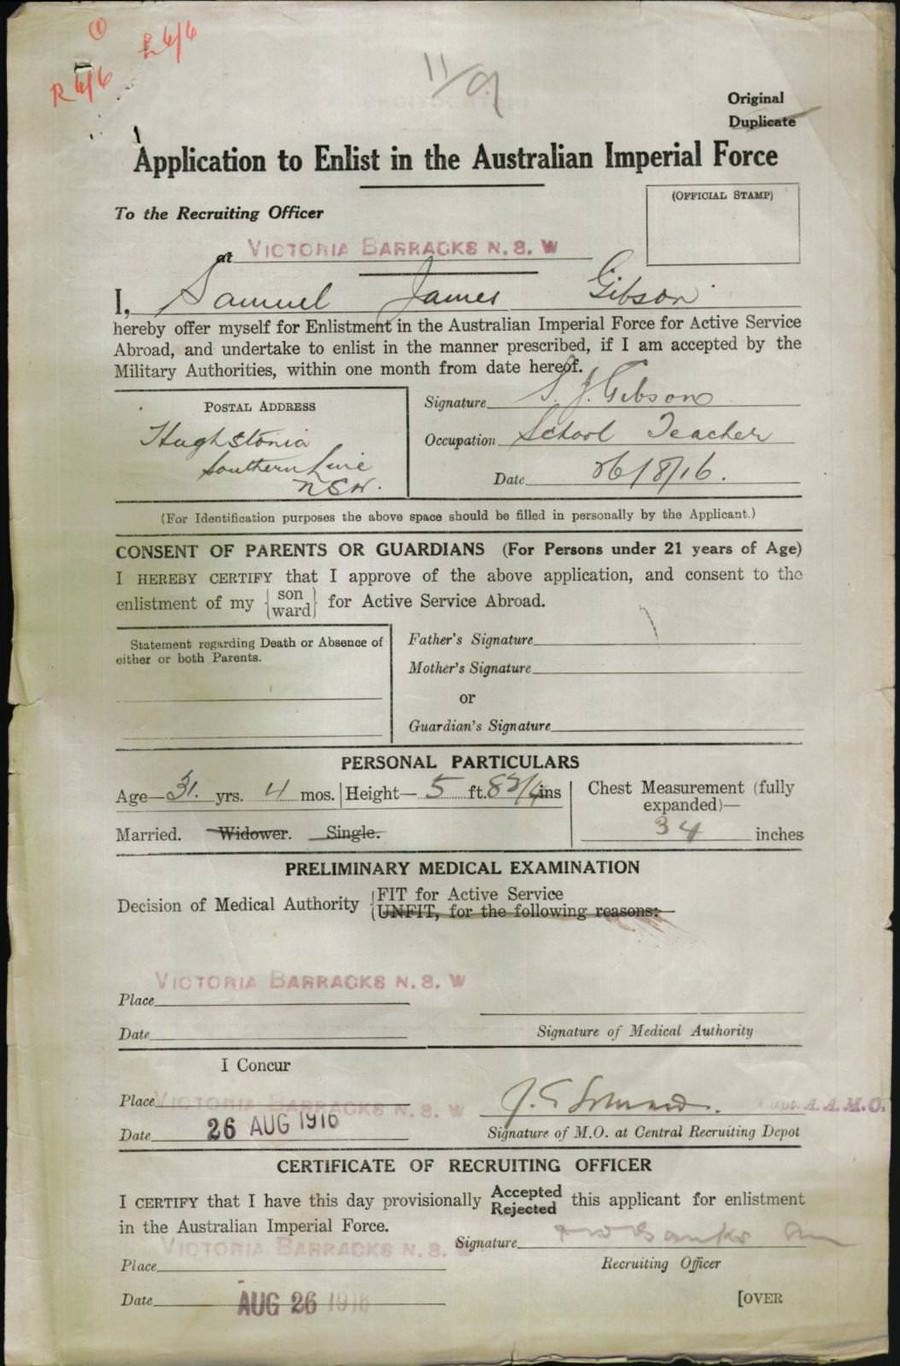 R 6/6 ① £ 6/6
11/9
Original
Duplicate
Application to Enlist in the Australian Imperial Force
To the Recruiting Officer
(OFFICIAL STAMP)
at VICTORIA BARRACKS N. S. W
I, Samuel James Gibson
hereby offer myself for Enlistment in the Australian Imperial Force for Active Service
Abroad, and undertake to enlist in the manner prescribed, if I am accepted by the
Military Authorities, within one month from date hereof.
POSTAL ADDRESS
Hughstonia
Southern Line
NSW.
Signature S. J. Gibson
Occupation School Teacher
Date 26/8/16.
(For Identification purposes the above space should be filled in personally by the Applicant.)
CONSENT OF PARENTS OR GUARDIANS (For Persons under 21 years of Age)
I HEREBY CERTIFY that I approve of the above application, and consent to the
enlistment of my {son ward} for Active Service Abroad.
Statement regarding Death or Absence of
either or both Parents.
Father's Signature
Mother's Signature
or
Guardian's Signature
PERSONAL PARTICULARS
Age—31. yrs. 4 mos. Height—5 ft. 8 3/4 ins
Chest Measurement (fully
expanded)—
34 inches
Married. Widower. Single.
PRELIMINARY MEDICAL EXAMINATION
Decision of Medical Authority {FIT for Active Service
{UNFIT, for the following reasons:—
VICTORIA BARRACKS N. S. W
Place
Date
Signature of Medical Authority
I Concur
Place VICTORIA BARRACKS N. S. W
A.A.M.O.
Date 26 AUG 1916
Signature of M.O. at Central Recruiting Depot
CERTIFICATE OF RECRUITING OFFICER
I CERTIFY that I have this day provisionally Accepted Rejected this applicant for enlistment
in the Australian Imperial Force.
VICTORIA BARRACKS N. S. W
Signature
Place
Recruiting Officer
Date AUG 26 1916
[OVER